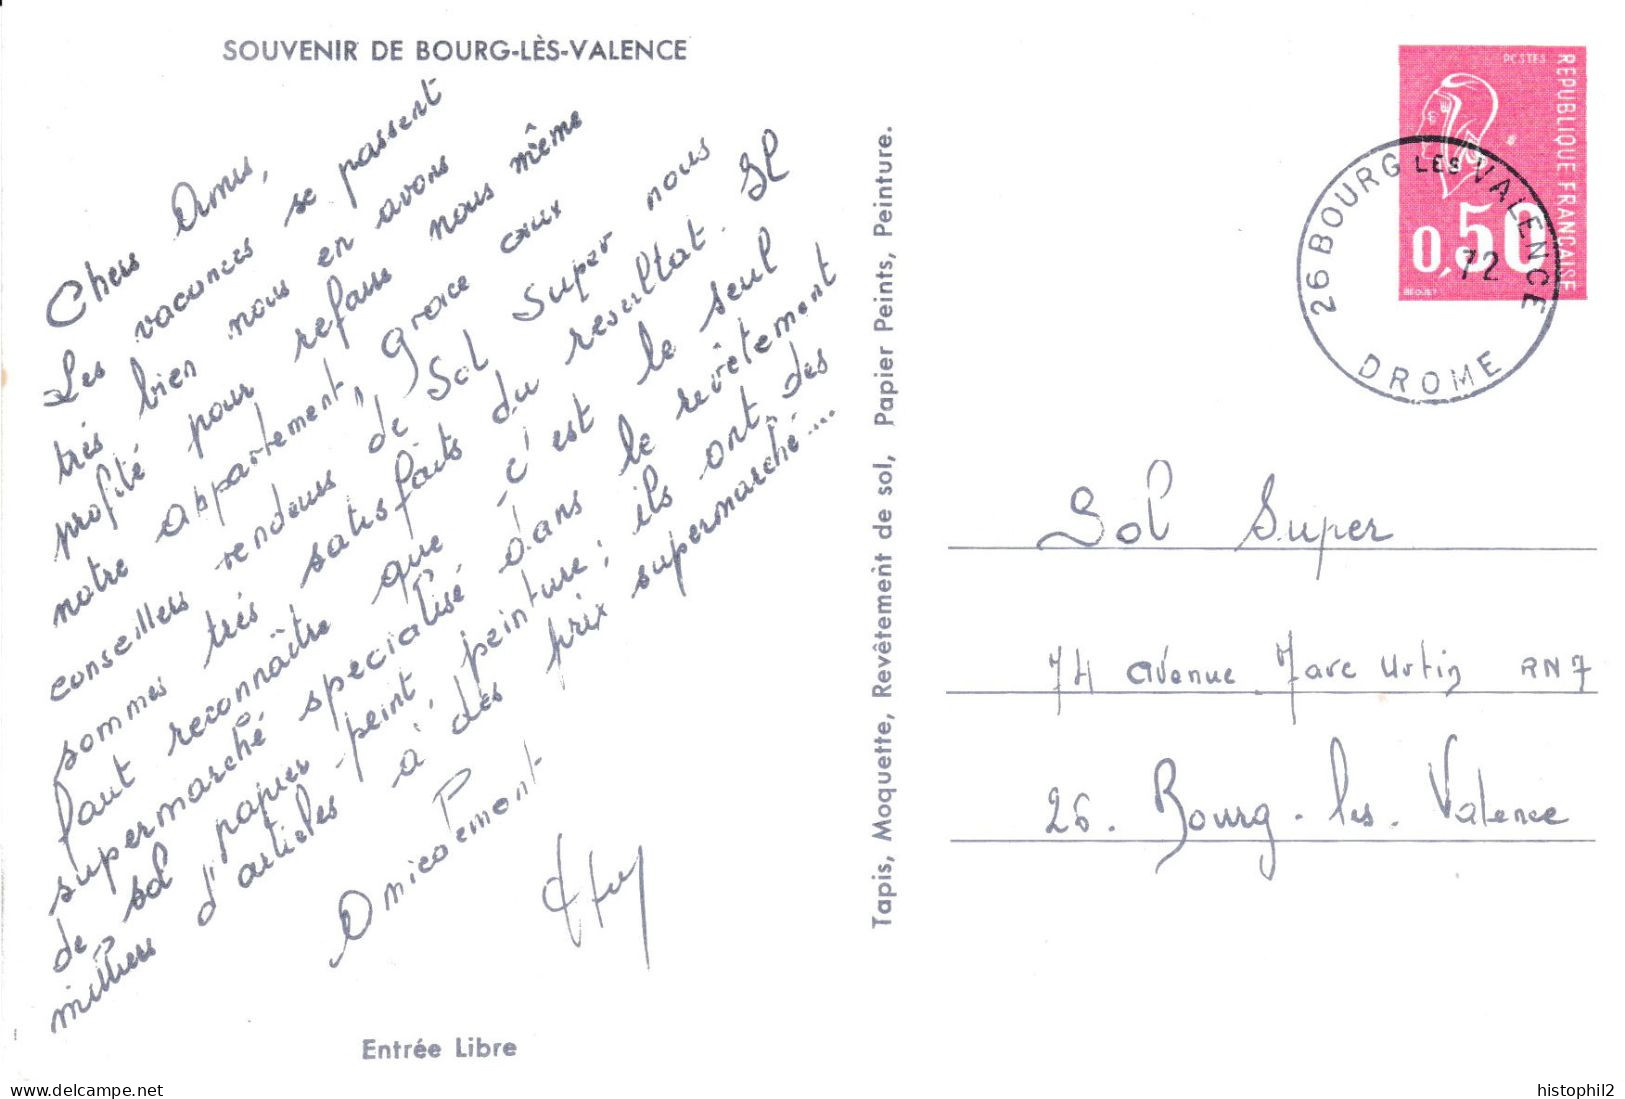 SOUVENIR DE BOURG-LÈS-VALENCE
Chers Amis,
Les vacances se passent
très bien nous en avons
profité pour refaire nous même
notre appartement, grace aux
conseillers vendeurs de Sol Super nous
sommes très satisfaits du resultat. Il
faut reconnaître que c'est le seul
supermarché specialisé dans le revêtement
de sol papier peint, peinture; ils ont des
milliers d'articles à des prix supermarché....
Amicalement
Entrée Libre
Tapis, Moquette, Revêtement de sol, Papier Peints, Peinture.
POSTES
REPUBLIQUE FRANÇAISE
0,50
BEQUET
26 BOURG LES VALENCE
72
DROME
Sol Super
74 avenue Marc Urtin RN7
26. Bourg-les-Valence
delcampe.net
histophil2